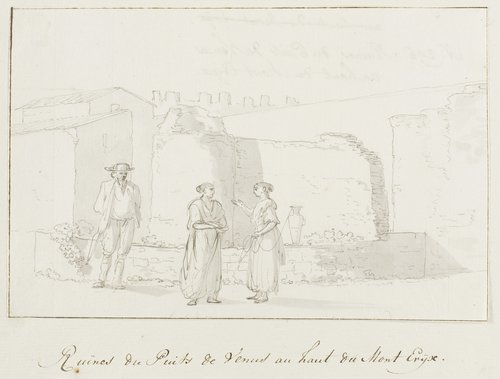 Ruines du Puits de Vénus au haut du Mont Eryx.